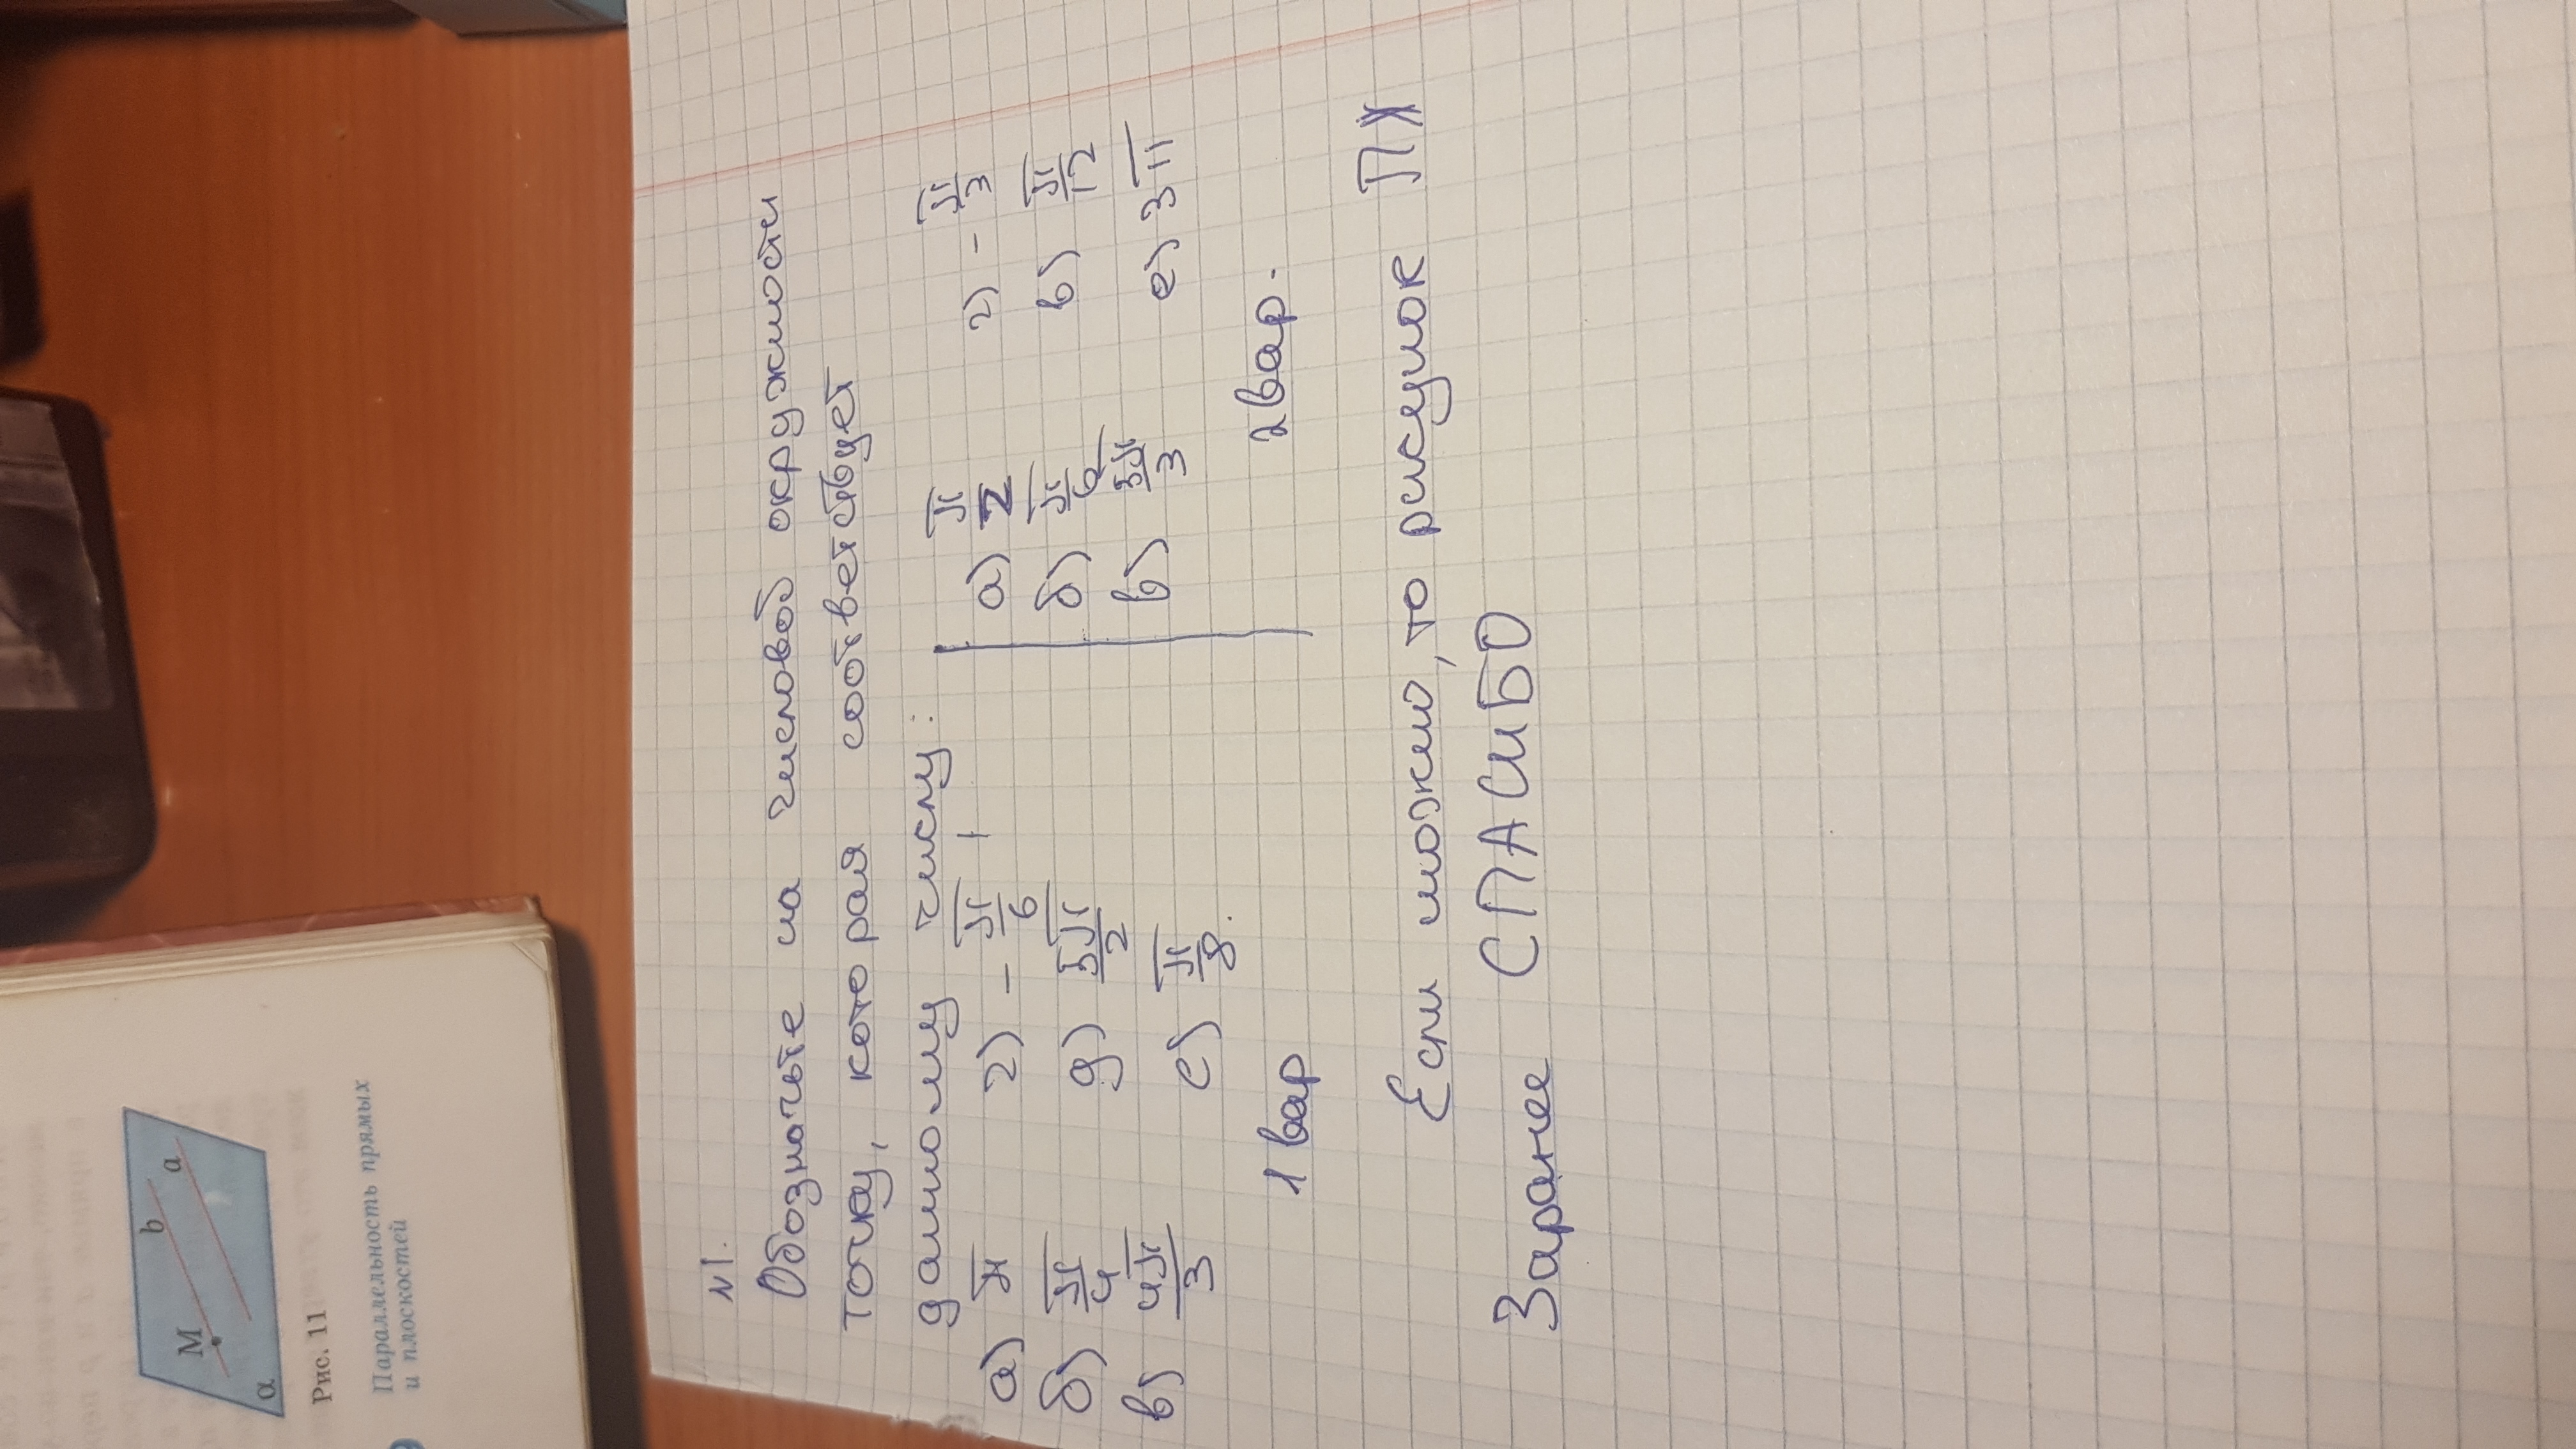 b
a
M
α
Рис. 11
Параллельность прямых
и плоскостей
N1.
Обозначьте на числовой окружности
точку, которая соответствует
данному числу:
а) π г) -π/6 а) π/2 г) -π/3
б) π/4 д) 5π/2 б) π/6 в) π/12
в) 4π/3 е) π/8. в) 5π/3 е) 3π
1 вар 2 вар.
Если можно, то рисунок
Заранее СПАСИБО